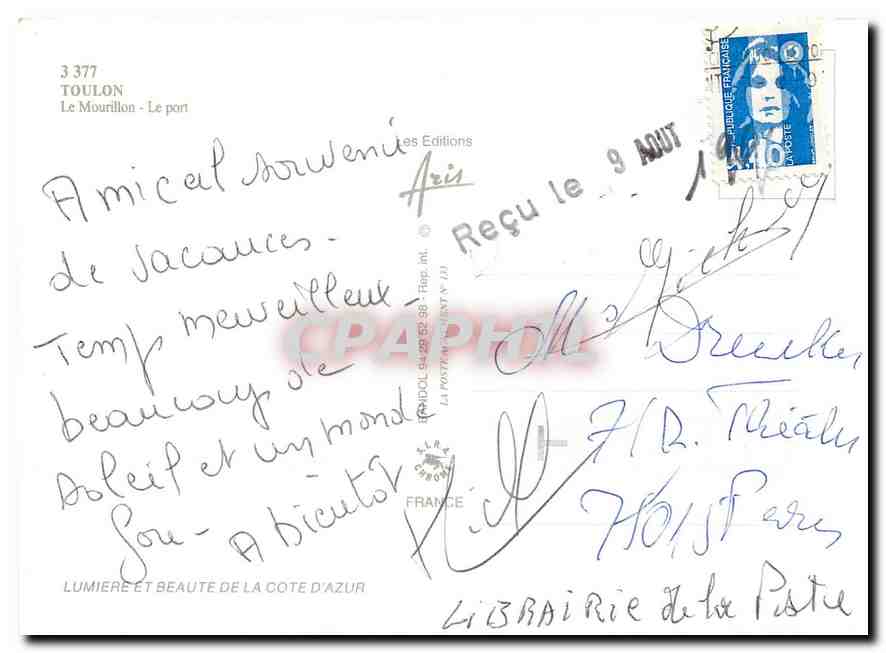 3 377
TOULON
Le Mourillon - Le port
Amical souvenir
de vacances -
Temp merveilleux -
beaucoup de
soleil et un monde
fou - A bientôt
LUMIERE ET BEAUTE DE LA COTE D'AZUR
Les Editions
Aris
BANDOL 94 29 52 98 - Rep. int. ©
ELRA
CHROME
FRANCE
Reçu le 9 AOUT
REPUBLIQUE FRANÇAISE
LA POSTE
CPAPHIL
Mr Drucker
7 R. Théâtre
75015 Paris
LIBRAIRIE de la Poste